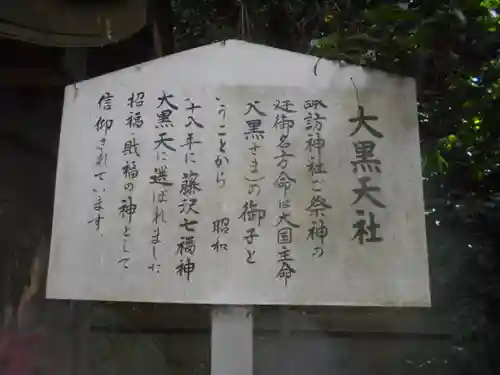 大黒天社
諏訪神社ご祭神の
建御名方命は大国主命
(大黒さま)の御子と
いうことから 昭和
二十八年に藤沢七福神
大黒天に選ばれました
招福・財福の神として
信仰されています.